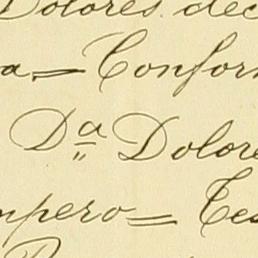 Dolores dec
a = Confor
Dª Dolore
mpero = Tes